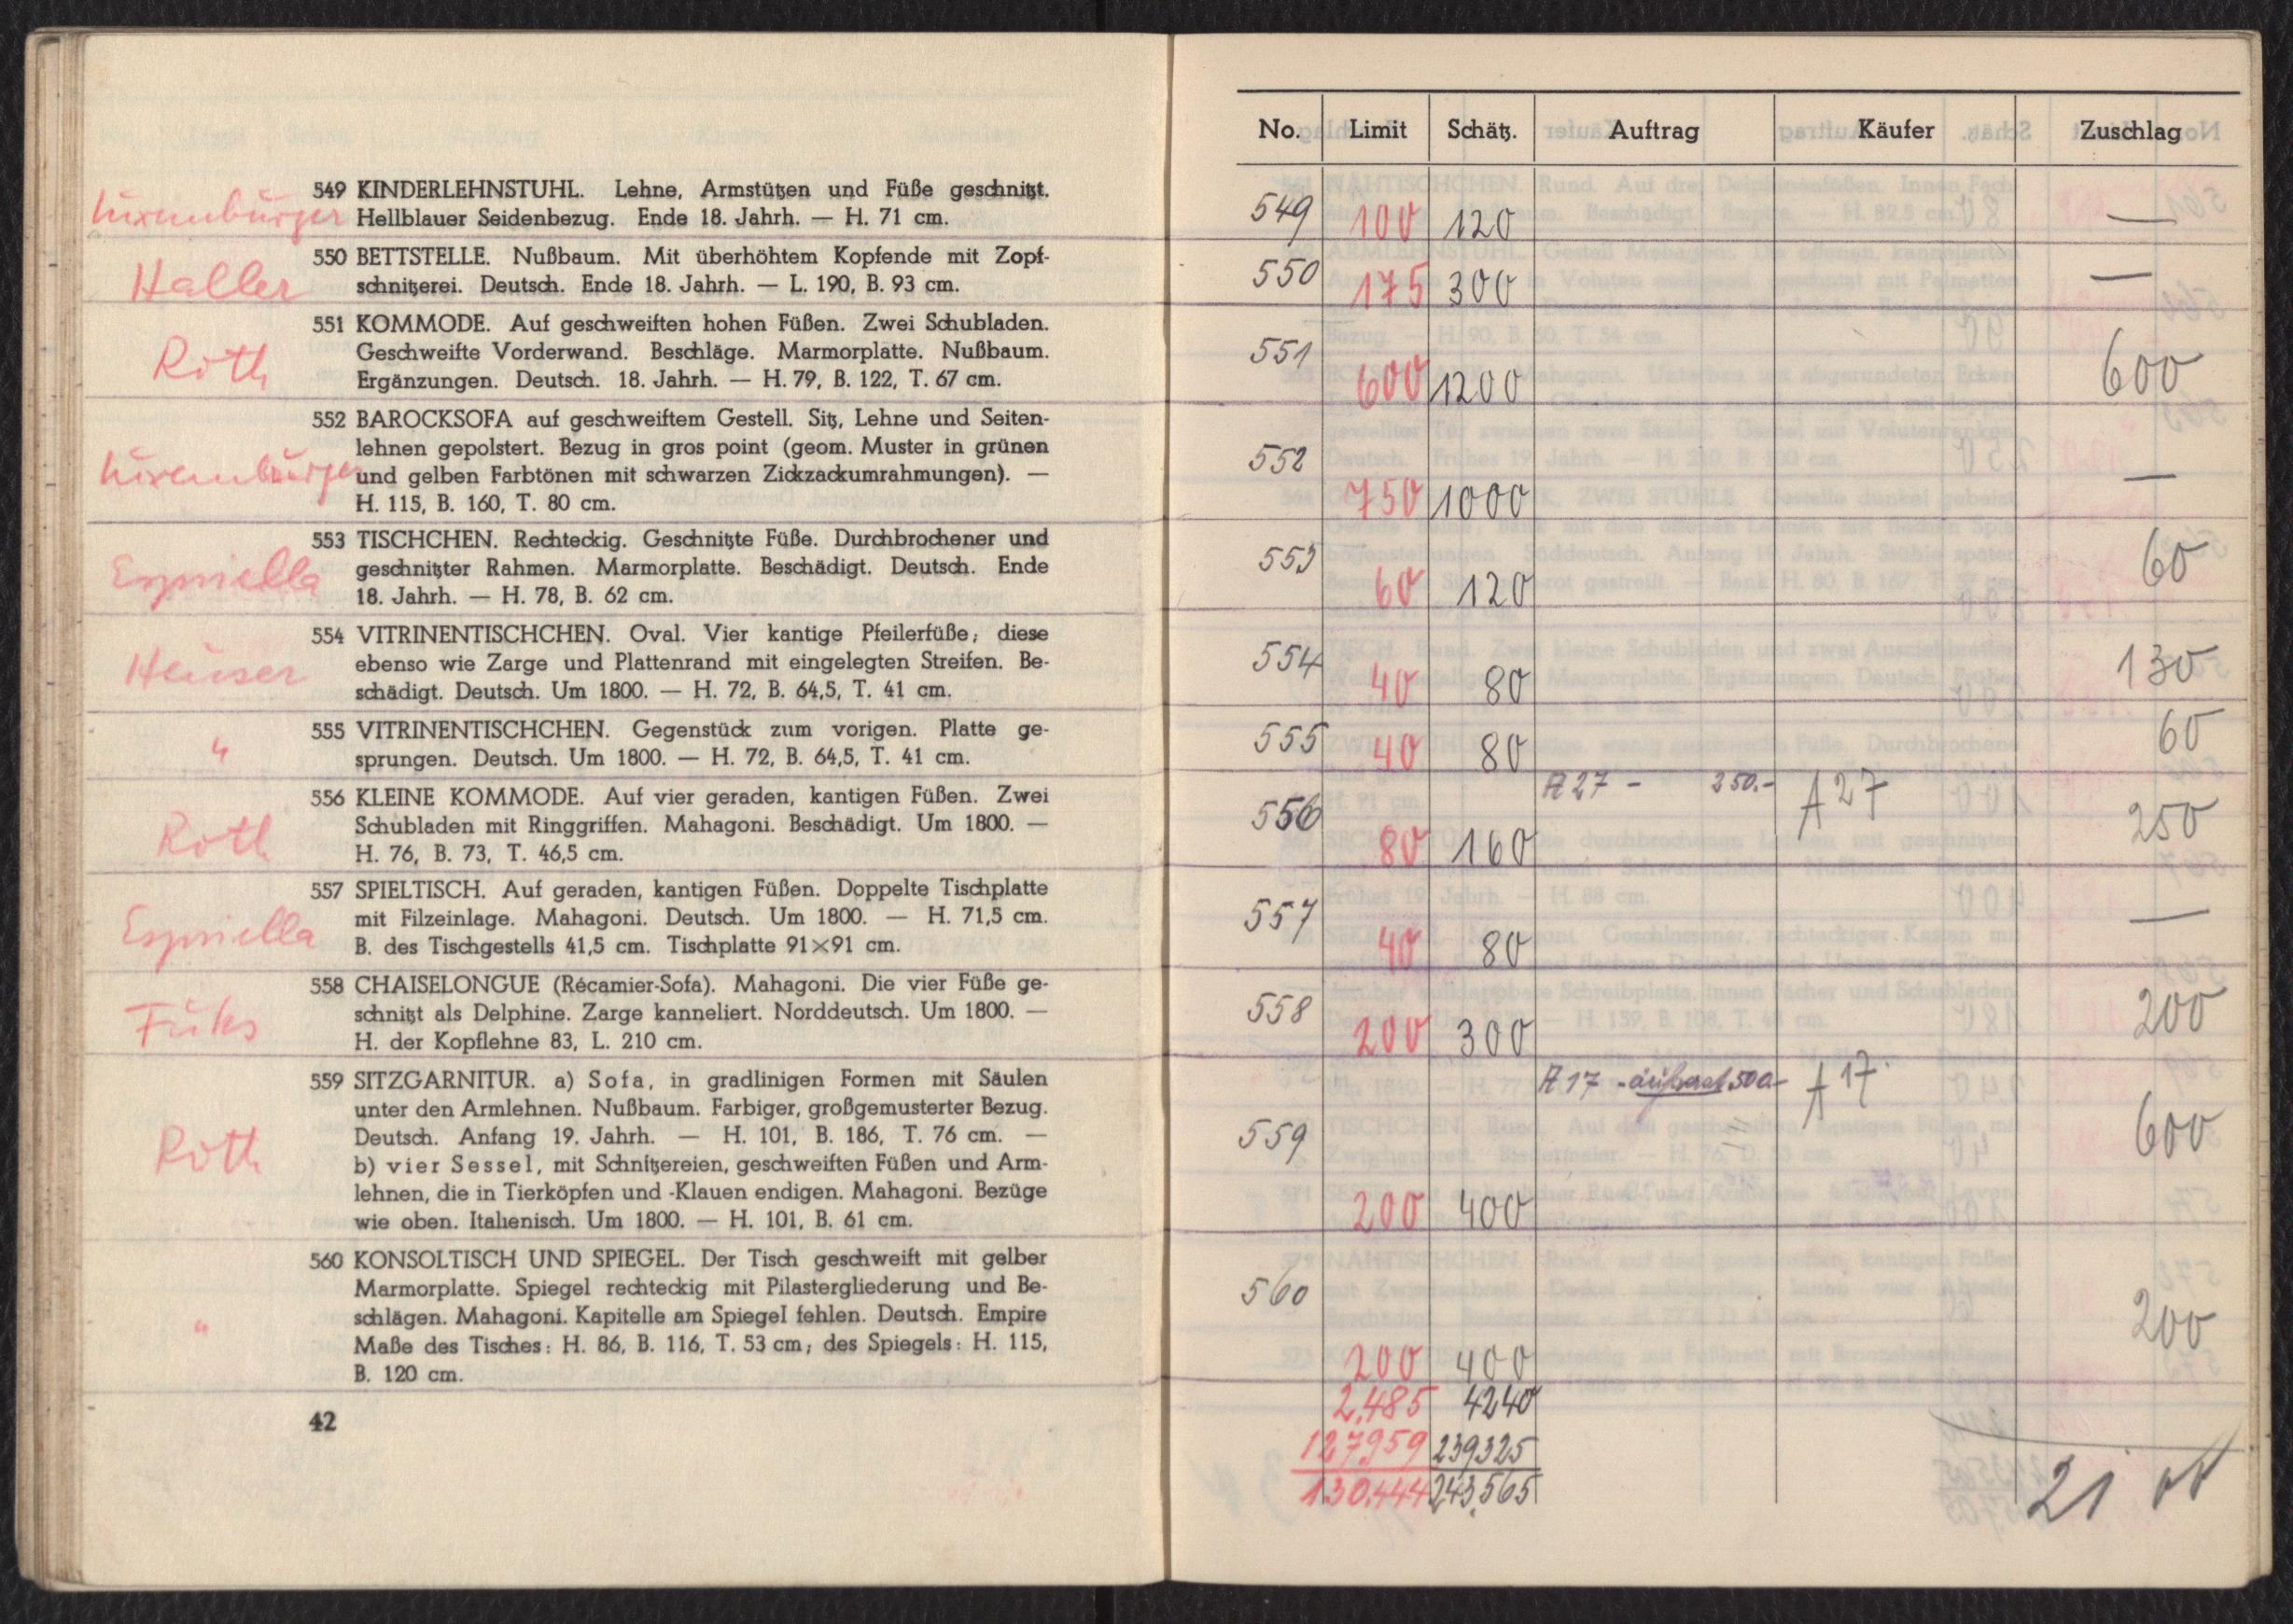 549 KINDERLEHNSTUHL. Lehne, Armstützen und Füße geschnitzt.
Luxemburger Hellblauer Seidenbezug. Ende 18. Jahrh. — H. 71 cm.
550 BETTSTELLE. Nußbaum. Mit überhöhtem Kopfende mit Zopf-
Haller schnitzerei. Deutsch. Ende 18. Jahrh. — L. 190, B. 93 cm.
551 KOMMODE. Auf geschweiften hohen Füßen. Zwei Schubladen.
Roth Geschweifte Vorderwand. Beschläge. Marmorplatte. Nußbaum.
Ergänzungen. Deutsch. 18. Jahrh. — H. 79, B. 122, T. 67 cm.
552 BAROCKSOFA auf geschweiftem Gestell. Sitz, Lehne und Seiten-
lehnen gepolstert. Bezug in gros point (geom. Muster in grünen
Luxemburger und gelben Farbtönen mit schwarzen Zickzackumrahmungen). —
H. 115, B. 160, T. 80 cm.
553 TISCHCHEN. Rechteckig. Geschnitzte Füße. Durchbrochener und
Espriella geschnitzter Rahmen. Marmorplatte. Beschädigt. Deutsch. Ende
18. Jahrh. — H. 78, B. 62 cm.
554 VITRINENTISCHCHEN. Oval. Vier kantige Pfeilerfüße; diese
Heuser ebenso wie Zarge und Plattenrand mit eingelegten Streifen. Be-
schädigt. Deutsch. Um 1800. — H. 72, B. 64,5, T. 41 cm.
555 VITRINENTISCHCHEN. Gegenstück zum vorigen. Platte ge-
" sprungen. Deutsch. Um 1800. — H. 72, B. 64,5, T. 41 cm.
556 KLEINE KOMMODE. Auf vier geraden, kantigen Füßen. Zwei
Roth Schubladen mit Ringgriffen. Mahagoni. Beschädigt. Um 1800. —
H. 76, B. 73, T. 46,5 cm.
557 SPIELTISCH. Auf geraden, kantigen Füßen. Doppelte Tischplatte
Espriella mit Filzeinlage. Mahagoni. Deutsch. Um 1800. — H. 71,5 cm.
B. des Tischgestells 41,5 cm. Tischplatte 91×91 cm.
558 CHAISELONGUE (Récamier-Sofa). Mahagoni. Die vier Füße ge-
Fuks schnitzt als Delphine. Zarge kanneliert. Norddeutsch. Um 1800. —
H. der Kopflehne 83, L. 210 cm.
559 SITZGARNITUR. a) Sofa, in gradlinigen Formen mit Säulen
unter den Armlehnen. Nußbaum. Farbiger, großgemusterter Bezug.
Deutsch. Anfang 19. Jahrh. — H. 101, B. 186, T. 76 cm. —
Roth b) vier Sessel, mit Schnitzereien, geschweiften Füßen und Arm-
lehnen, die in Tierköpfen und -Klauen endigen. Mahagoni. Bezüge
wie oben. Italienisch. Um 1800. — H. 101, B. 61 cm.
560 KONSOLTISCH UND SPIEGEL. Der Tisch geschweift mit gelber
Marmorplatte. Spiegel rechteckig mit Pilastergliederung und Be-
schlägen. Mahagoni. Kapitelle am Spiegel fehlen. Deutsch. Empire
" Maße des Tisches: H. 86, B. 116, T. 53 cm; des Spiegels: H. 115,
B. 120 cm.
42
No. Limit Schätz. Auftrag Käufer Zuschlag
549 100 120 —
550 175 300 —
551 600 1200 600
552 750 1000 —
553 60 120 60
554 40 80 130
555 40 80 60
556 80 160 A 27 - 250.- A 27 250
557 40 80 —
558 200 300 200
559 200 400 A 17 - äußerst 500.- A 17 600
560 200 400 200
2.485 4240
127959 239325
130.444 243.565
21 00